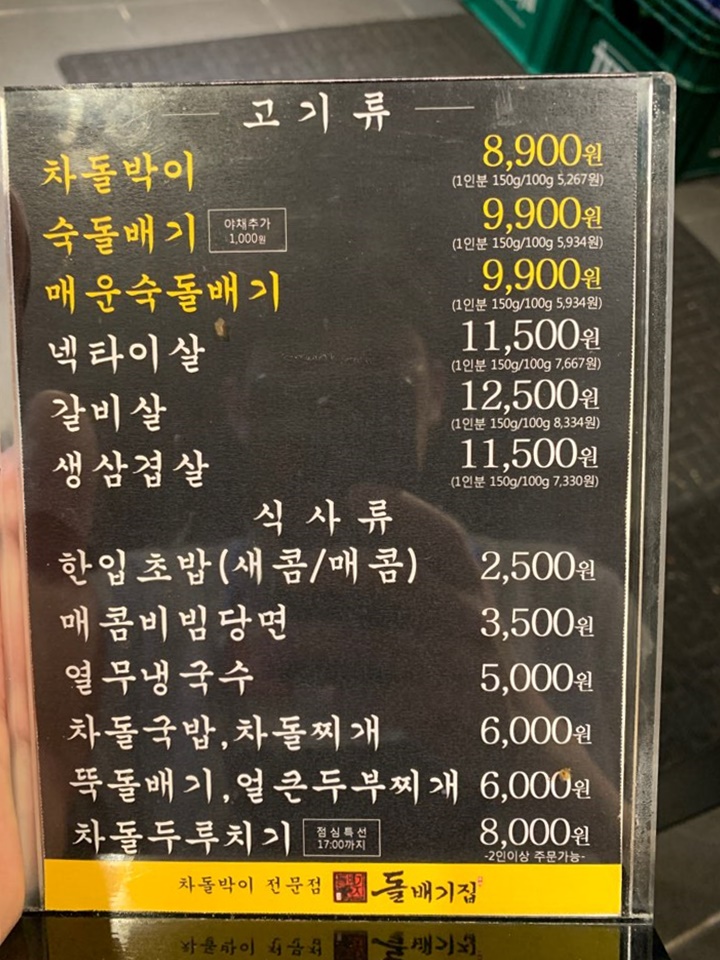 고기류
차돌박이 8,900원
(1인분 150g/100g 5,267원)
숙돌배기 야채추가 1,000원 9,900원
(1인분 150g/100g 5,934원)
매운숙돌배기 9,900원
(1인분 150g/100g 5,934원)
넥타이살 11,500원
(1인분 150g/100g 7,667원)
갈비살 12,500원
(1인분 150g/100g 8,334원)
생삼겹살 11,500원
(1인분 150g/100g 7,330원)
식사류
한입초밥(새콤/매콤) 2,500원
매콤비빔당면 3,500원
열무냉국수 5,000원
차돌국밥,차돌찌개 6,000원
뚝돌배기,얼큰두부찌개 6,000원
차돌두루치기 점심특선 17:00까지 8,000원
-2인이상 주문가능-
차돌박이 전문점 돌배기집